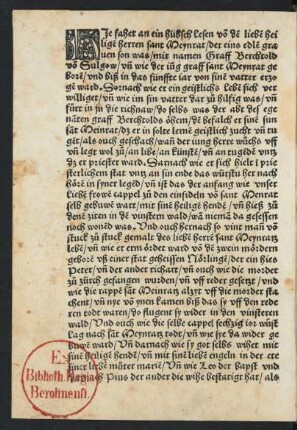 Hie fahet an ein hübsch lesen vō dē liebē hei
ligē herren sant Meynrat / der eins edlē gra
uen son was / mit namen Graff Berchtold
vō Sulgow / vñ wie der iūg graff sant Meynrat ge
borē / vnd biß in das fünffte iar von sinē vatter erzo
gē ward. Dornach wie er ein geistlichs lebē sich ver
williget / vñ wie im sin vatter dar zū hilfig was / vñ
fürt in in die richnaw / do selbs was der abt des ege
nātē graff Berchtolds öhem / dē befalch er sinē sun
sāt Meinrat / dz er in solte lernē geistlich zucht vñ tu
gēt / als ouch geschach / wañ der iung herre wūchs vff
vñ legt wol zū / an libe / an künstē / vñ an tugēdē vntz
dz er priester ward. Darnach wie er sich hielt ī pri
esterlichem stat vntz an sin ende das würstu her nach
hörē in syner legēd / vñ ist das der anfang wie vnser
liebē frowē cappel zū den einsideln vō sant Meinrat
selb gebuwē wart / mit sinē heiligē hendē / vñ hieß zū
denē zitten in dē vinstern wald / vñ niemā da gesessen
noch wonēd was. Vnd ouch hernach so vint man vō
stuck zū stuck gemalt des liebē herrē sant Meynratz
lebē / vñ wie er erm ördet ward vō dē zwein mördern
geborē vß einer stat geheissen Nörlingē / der ein hies
Peter / vñ der ander richart / vñ ouch wie die mörder
zū zürch gefangen wurden / vñ vff reder gesetzt / vnd
wie die rappē sāt Meinratz alzyt vff die mörder sta
chent / vñ nye vō ynen kamen biß das sy vff den rede
ren todt waren / do flugent sy wider in den vinsteren
wald / Vnd ouch wie die selbe cappel sechzig ior wūst
lag nach sāt Meynratz todt / vñ wie sy da wider ge
buwē ward / Vñ darnach wie sy got selbs wihet mit
sinē heiligē hendē / vñ mit sinē liebē engeln in der ere
siner liebē mūter mariē / Vñ wie Leo der bapst vnd
darnach Pius der ander die wihe bestātigt hat / als
Ex
Biblioth. Regia
Berolinensi.